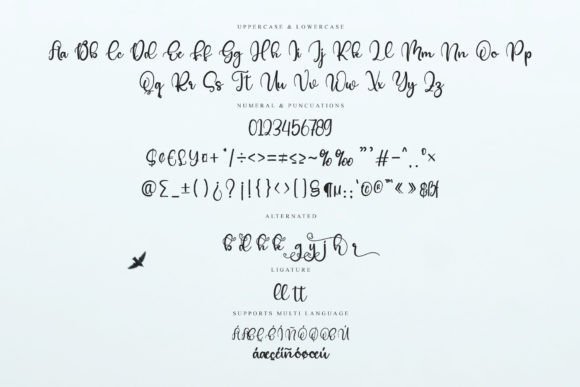 UPPERCASE & LOWERCASE
Aa Bb Cc Dd Ee Ff Gg Hh Ii Jj Kk Ll Mm Nn Oo Pp
Qq Rr Ss Tt Uu Vv Ww Xx Yy Zz
NUMERAL & PUNCUATIONS
0123456789
$¢€£¥¤+*/÷<>=≠≤≥~%‰"'#-^..°×
@∑_±()¿?¡!{}<>[]§¶µ:;'©®™«»&ß
ALTERNATED
b d h k g y j h r
LIGATURE
ll tt
SUPPORTS MULTI LANGUAGE
ÁÆÇÉÍÑÓØŒÚ
áæçéíïñóøœú